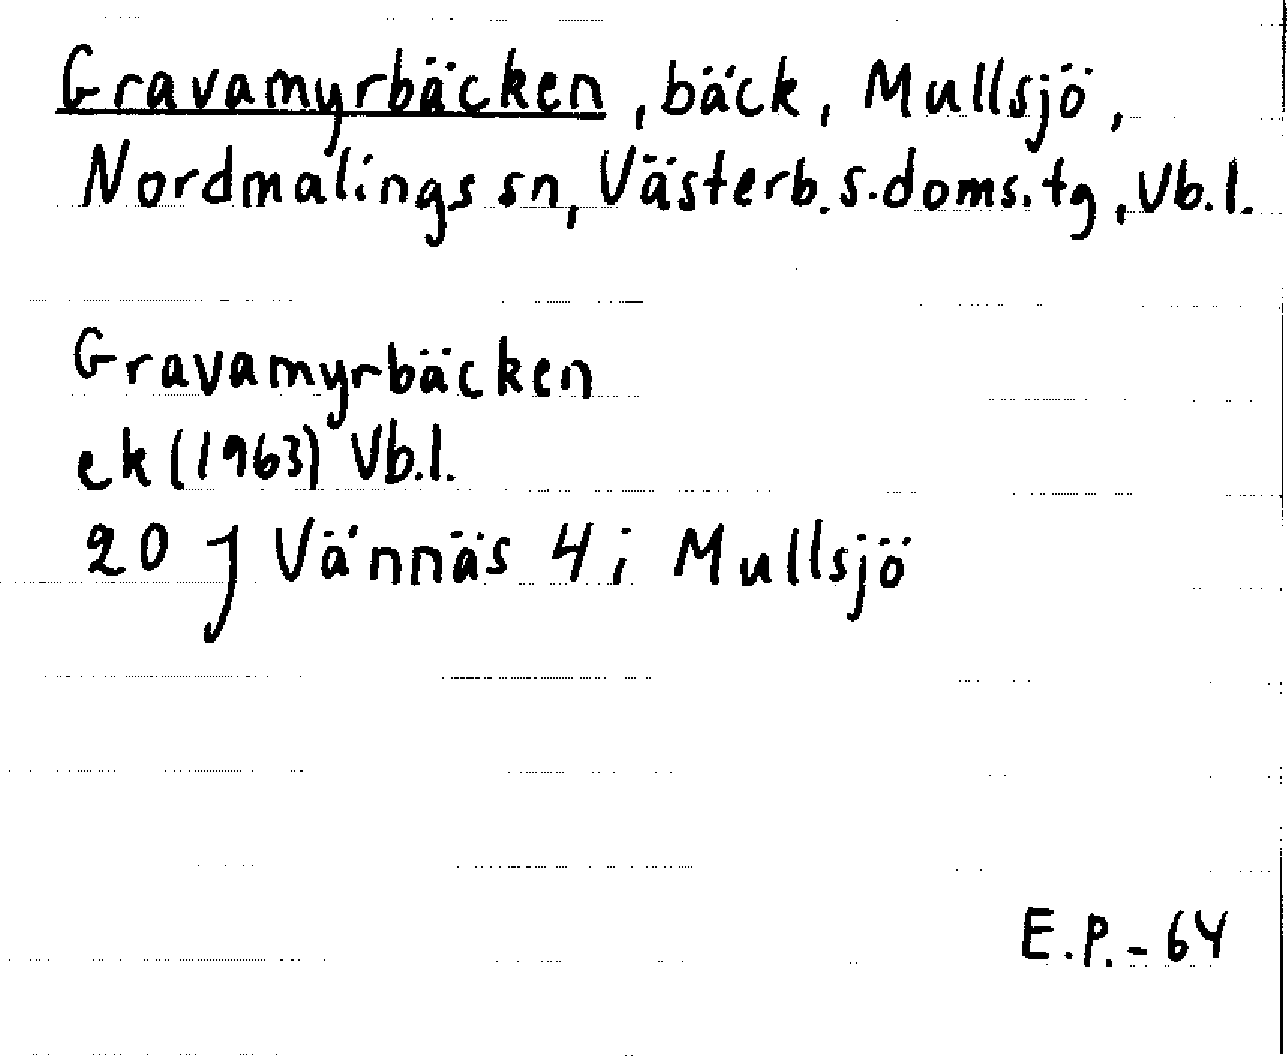 Gravamyrbäcken, bäck, Mullsjö,
Nordmalings sn, Västerb. s. doms. tg, Vb.l.
Gravamyrbäcken
ek (1963) Vb.l.
20 J Vännäs 4 i Mullsjö
E.P.-64